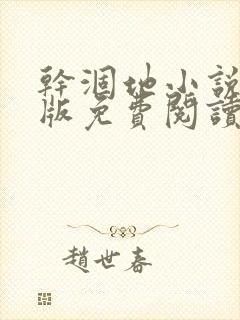 幹涸地小說
版免費閱讀
趙世春